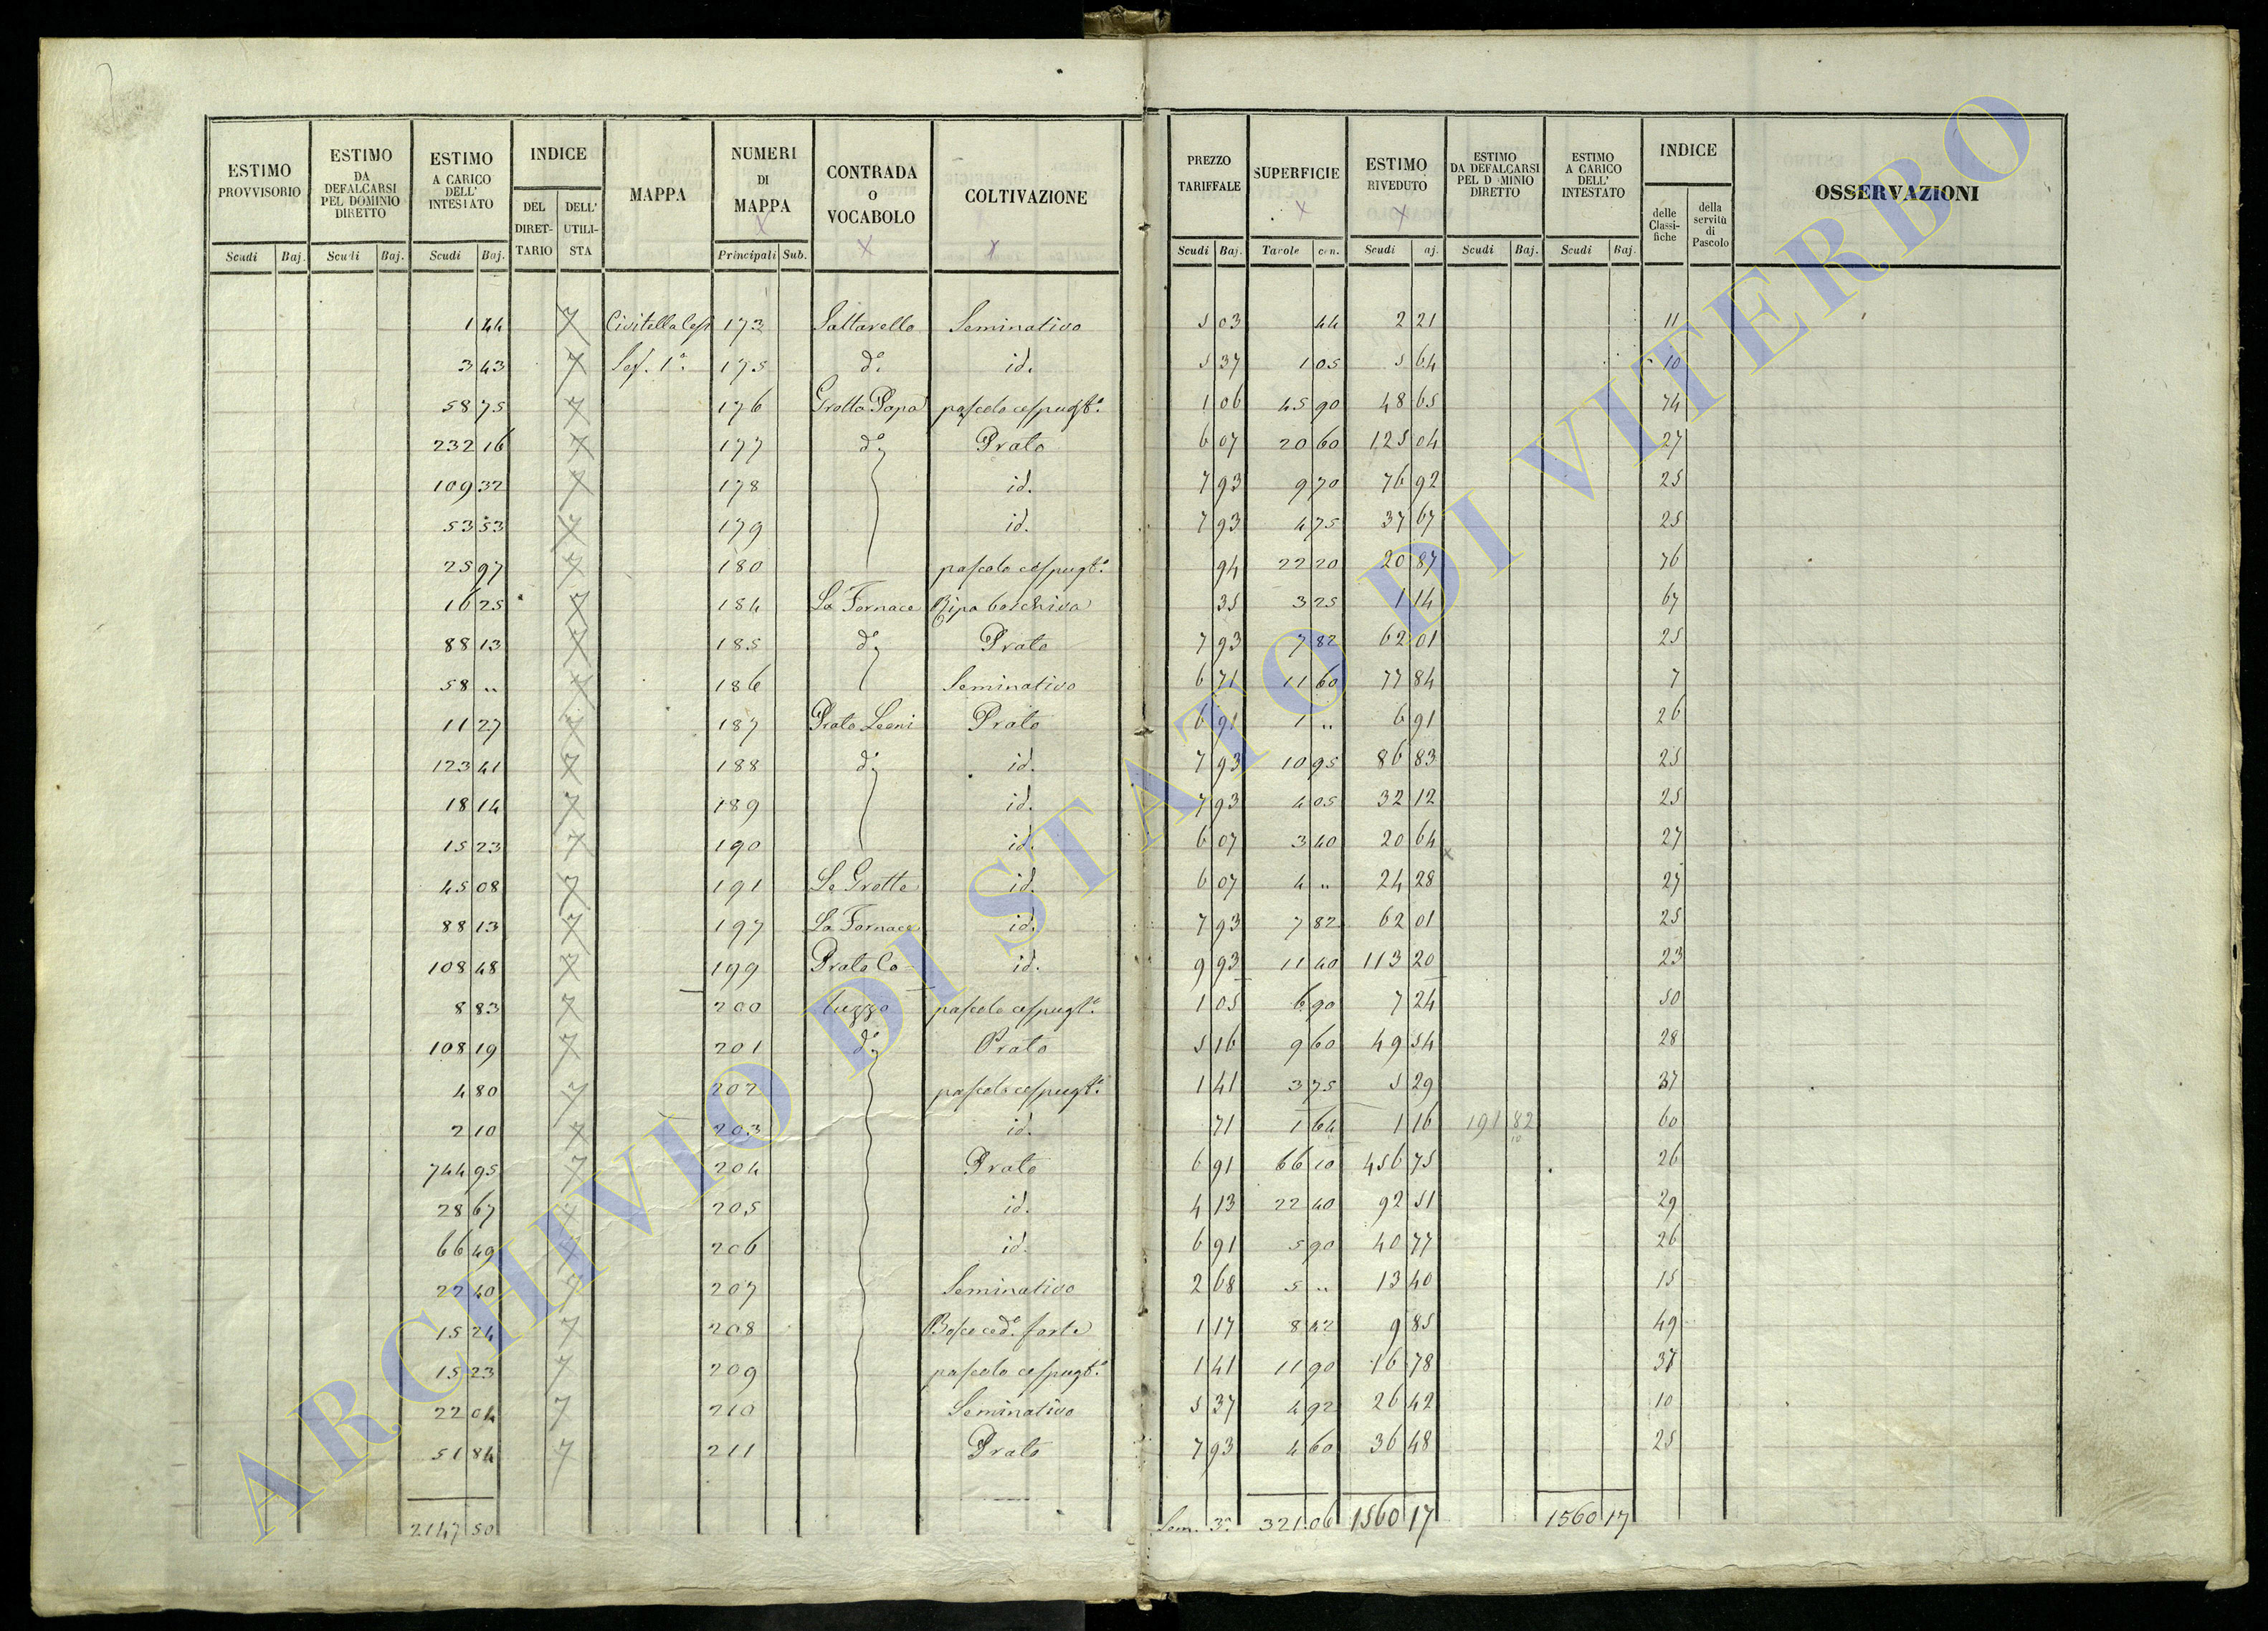 ESTIMO PROVVISORIO | ESTIMO DA DEFALCARSI PEL DOMINIO DIRETTO | ESTIMO A CARICO DELL' INTESTATO | INDICE | MAPPA | NUMERI DI MAPPA | CONTRADA o VOCABOLO | COLTIVAZIONE | PREZZO TARIFFALE | SUPERFICIE | ESTIMO RIVEDUTO | ESTIMO DA DEFALCARSI PEL D MINIO DIRETTO | ESTIMO A CARICO DELL' INTESTATO | INDICE | OSSERVAZIONI
DEL DIRET-TARIO | DELL' UTILI-STA | delle Classi-fiche | della servitù di Pascolo
Scudi | Baj. | Scudi | Baj. | Scudi | Baj. | Principali | Sub. | Scudi | Baj. | Tavole | cen. | Scudi | aj. | Scudi | Baj. | Scudi | Baj.
1 44 | 7 | Civitella Cesi | 173 | Saltarello | Seminativo | 5 03 | 44 | 2 21 | 11
3 43 | 7 | Sez. 1ª | 175 | d.º | id. | 5 37 | 1 05 | 5 64 | 10
58 75 | 7 | 176 | Grotta Papa | pascolo cespugt.º | 1 06 | 45 90 | 48 65 | 74
232 16 | 7 | 177 | d.º | Prato | 6 07 | 20 60 | 125 04 | 27
109 32 | 7 | 178 | id. | 7 93 | 9 70 | 76 92 | 25
53 53 | 7 | 179 | id. | 7 93 | 4 75 | 37 67 | 25
25 97 | 7 | 180 | pascolo cespugt.º | 94 | 22 20 | 20 87 | 76
16 25 | 7 | 184 | La Fornace | Ripa boschiva | 35 | 3 25 | 1 14 | 67
88 13 | 7 | 185 | d.º | Prato | 7 93 | 7 82 | 62 01 | 25
58 .. | 7 | 186 | Seminativo | 6 71 | 11 60 | 77 84 | 7
11 27 | 7 | 187 | Prato Leoni | Prato | 6 91 | 1 .. | 6 91 | 26
123 41 | 7 | 188 | d.º | id. | 7 93 | 10 95 | 86 83 | 25
18 14 | 7 | 189 | id. | 7 93 | 4 05 | 32 12 | 25
15 23 | 7 | 190 | id. | 6 07 | 3 40 | 20 64 | 27
45 08 | 7 | 191 | Le Grotte | id. | 6 07 | 4 .. | 24 28 | 27
88 13 | 7 | 197 | La Fornace | id. | 7 93 | 7 82 | 62 01 | 25
108 48 | 7 | 199 | Prato Co- | id. | 9 93 | 11 40 | 113 20 | 23
8 83 | 7 | 200 | tuzzo | pascolo cespugt.º | 1 05 | 6 90 | 7 24 | 50
108 19 | 7 | 201 | d.º | Prato | 5 16 | 9 60 | 49 54 | 28
4 80 | 7 | 202 | pascolo cespugt.º | 1 41 | 3 75 | 5 29 | 37
2 10 | 7 | 203 | id. | 71 | 1 64 | 1 16 | 191 82 10 | 60
744 95 | 7 | 204 | Prato | 6 91 | 66 10 | 456 75 | 26
28 67 | 7 | 205 | id. | 4 13 | 22 40 | 92 51 | 29
66 49 | 7 | 206 | id. | 6 91 | 5 90 | 40 77 | 26
22 40 | 7 | 207 | Seminativo | 2 68 | 5 .. | 13 40 | 15
15 24 | 7 | 208 | Bosco ced.º forte | 1 17 | 8 42 | 9 85 | 49
15 23 | 7 | 209 | pascolo cespugt.º | 1 41 | 11 90 | 16 78 | 37
22 04 | 7 | 210 | Seminativo | 5 37 | 4 92 | 26 42 | 10
51 84 | 7 | 211 | Prato | 7 93 | 4 60 | 36 48 | 25
2147 50 | 3ª | 321.06 | 1560 17 | 1560 17
ARCHIVIO DI STATO DI VITERBO